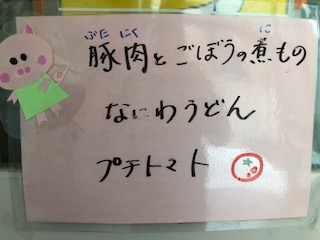 ぶた にく に
豚肉とごぼうの煮もの
なにわうどん
プチトマト